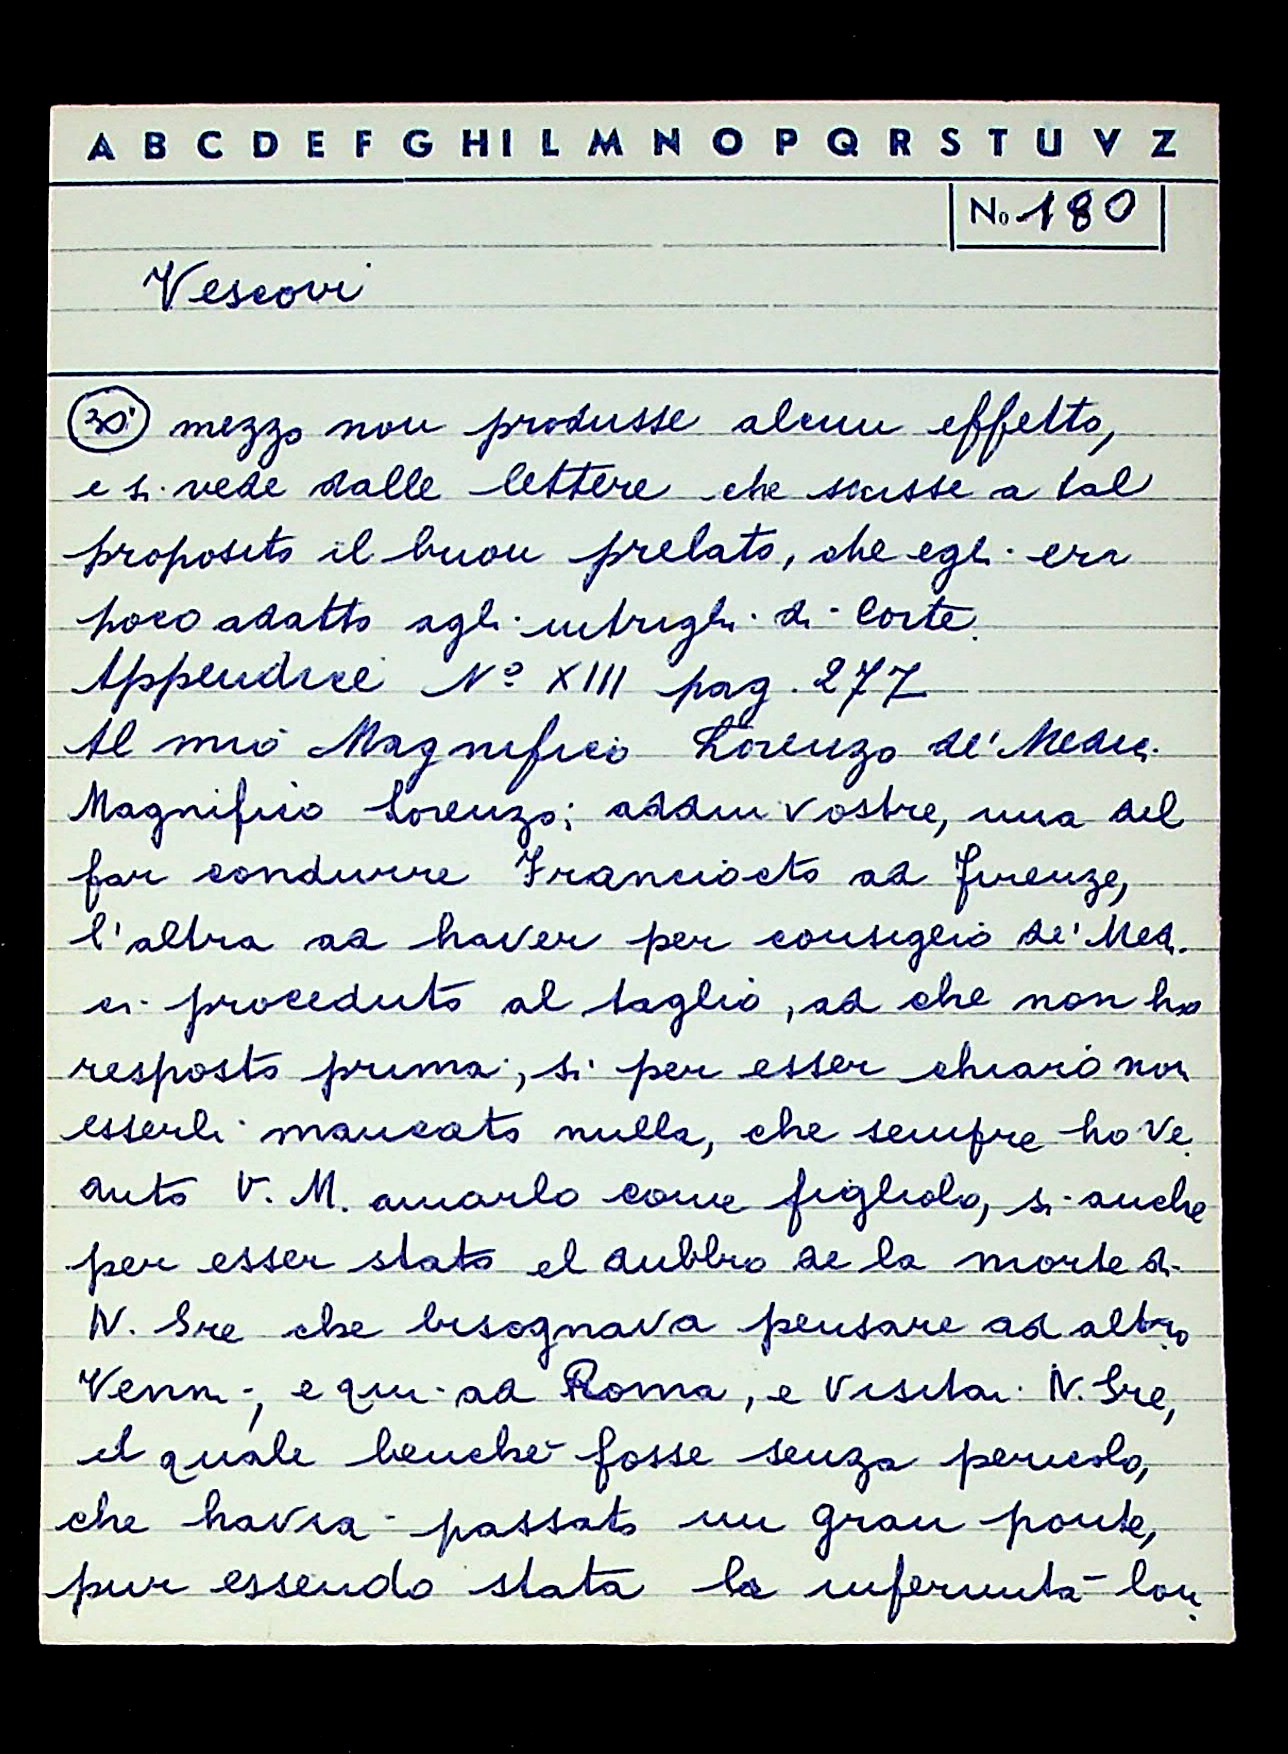 A B C D E F G H I L M N O P Q R S T U V Z
No 180
Vescovi
30' mezzo non produsse alcun effetto,
e si vede dalle lettere che scrisse a tal
proposito il buon prelato, che egli era
poco adatto agli intrighi di Corte.
Appendice Nº XIII pag. 277
Al mio Magnifico Lorenzo de' Medici
Magnifico Lorenzo; addui vostre, una del
far condurre Franciocto ad Firenze,
l'altra ad haver per consiglio de' Med.
ci proceduto al taglio, ad che non ho
resposto prima, si per esser chiaro non
esserli mancato nulla, che sempre ho ve.
duto V. M. amarlo come figliolo, si anche
per esser stato el dubbio de la morte di
N. Sre che bisognava pensare ad altro
Venni, e qui ad Roma, e visitai N. Sre,
el quale benchè fosse senza pericolo,
che havia passato un gran ponte,
pur essendo stata la infermità lon.